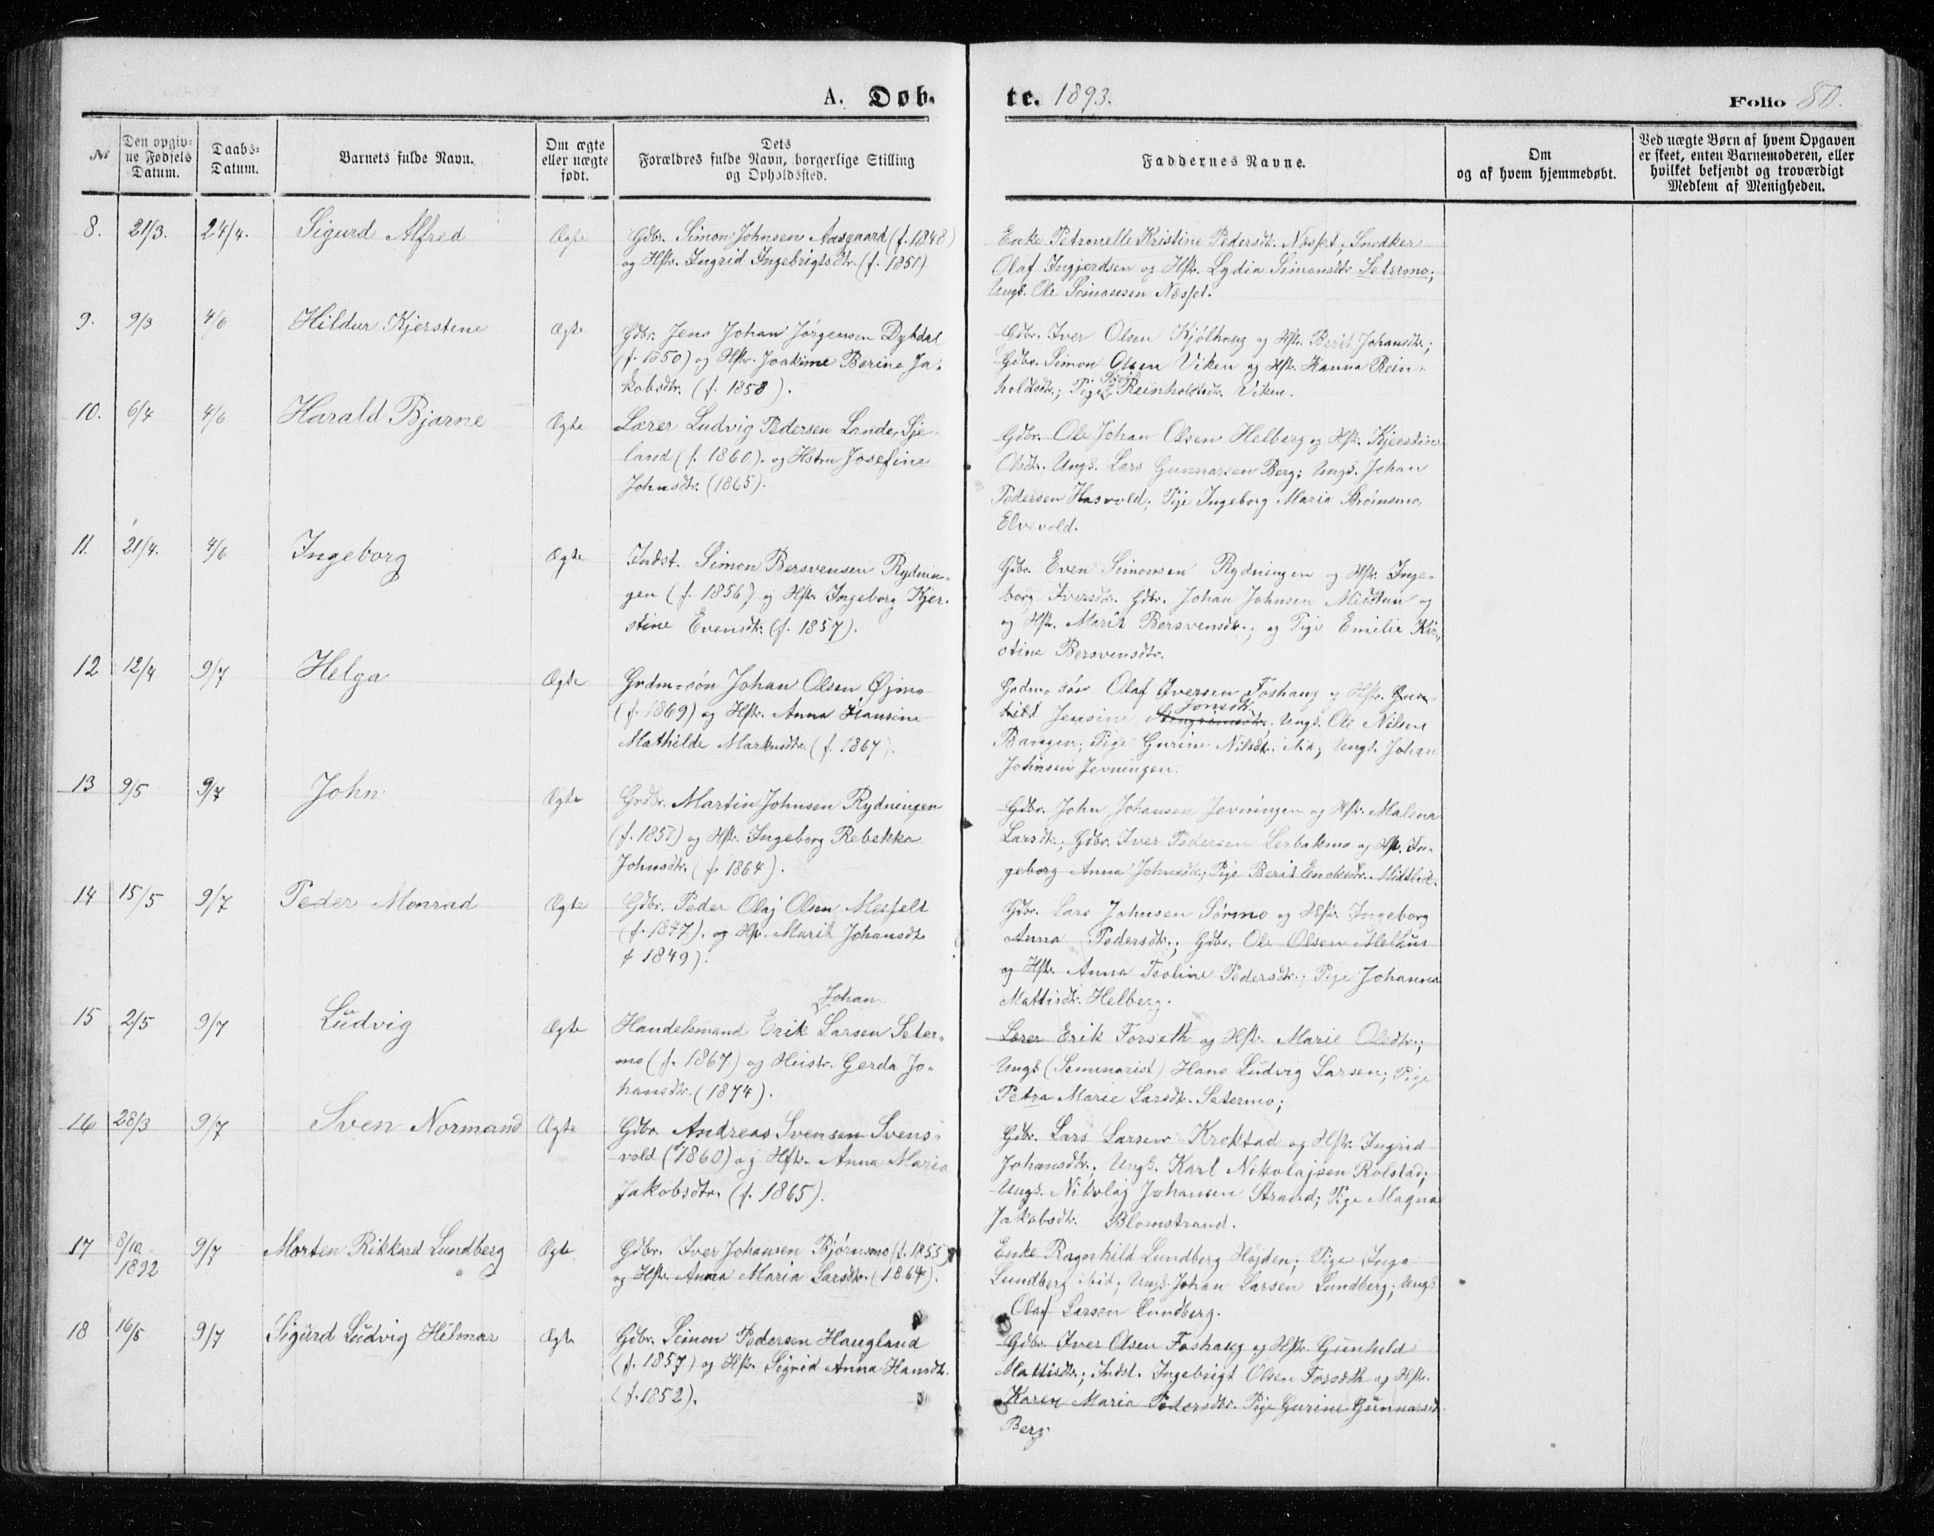 A. Døbte. 1893.
Folio 80.
№
Den opgivne Fødsels Datum.
Daabs-Datum.
Barnets fulde Navn.
Om ægte eller uægte født.
Dets Forældres fulde Navn, borgerlige Stilling og Opholdssted.
Faddernes Navne.
Om og af hvem hjemmedøbt.
Ved uægte Børn af hvem Opgaven er skeet, enten Barnemoderen, eller hvilket bekjendt og troværdigt Medlem af Menigheden.
8. 21/3. 24/4. Sigurd Alfred Ægte
Gdbr. Simon Johnsen Aasgaard (f. 1848)
og Hstr. Ingrid Ingebrigtsdtr. (f. 1851)
Enke Petronelle Kristine Pedersdt. Næsset; Snedker
Olaf Ingjerdsen og Hstr. Lydia Simonsdtr. Setermo;
Ungk. Ole Simonsen Næsset.
9. 9/3 4/6 Hildur Kjerstine Ægte
Gdbr. Jens Johan Jørgensen Dybdal
(f. 1850) og Hstr. Joakime Berine Ja-
kobsdtr. (f. 1858).
Gdbr. Iver Olsen Kjølhaug og Hstr. Berit Johansdtr.;
Gdbr. Simon Olsen Viken og Hstr. Hanna Rein-
holdsdtr.; Pige Reinholdsdtr. Viken.
10. 6/4 4/6 Harald Bjarne Ægte
Lærer Ludvig Pedersen Lande, Sje-
land (f. 1860). og Hstru Josefine
Johnsdtr. (1865).
Gdbr. Ole Johan Olsen Helberg og Hstr. Kjerstine
Olsdtr. Ungk. Lars Gunnarsen Berg; Ungk. Johan
Pedersen Hasvold; Pige Ingeborg Maria Strømsmo,
Elvevold.
11. 21/4. 4/6 Ingeborg Ægte
Indst. Simon Bersvensen Rydnin-
gen (f. 1856) og Hstr. Ingeborg Kjer-
stine Evensdtr. (f. 1857).
Gdbr. Even Simonsen Rydningen og Hstr. Inge-
borg Iversdtr. Gdbr. Johan Johnsen Midtun og
og Hstr. Marit Bersvensdtr.; og Pige Emilie Kir-
stine Bersvensdtr.
12 12/4 9/7 Helga Ægte
Grdm-søn Johan Olsen Øjmo
(f. 1869) og Hstr. Anna Hansine
Mathilde Markusdtr. (f. 1867).
Grdm.søn Olaf Iversen Foshaug og Hstr. Gun-
hild Jensine Jonsdtr., Ungk. Ole Nilsen
Bangen; Pige Gurine Nilsdtr. ibid; Ungk. Johan
Johnsen Jevningen.
13 9/5 9/7 John Ægte
Grdbr. Martin Johnsen Rydningen
(f. 1857) og Hstr. Ingeborg Rebekka
Johnsdtr. (f. 1864).
Gdbr. John Johansen Jevningen og Hstr. Malena
Larsdtr.; Gdbr. Iver Pedersen Lerbakmo og Hstr. In-
geborg Anna Johnsdtr.; Pige Berit Enoksdtr. Midtlid.
14 15/5 9/7 Peder Monrad Ægte
Gdbr. Peder Olaj Olsen Messelt
(f. 1847). og Hstr. Marit Johansdtr.
f 1849).
Gdbr. Lars Johnsen Sørmo og Hstr. Ingeborg
Anna Pedersdtr.; Gdbr. Ole Olsen Melhus
og Hstr. Anna Teoline Pedersdtr.; Pige Johanna
Mattisdtr. Helberg.
15 2/5 9/7 Ludvig Ægte
Johan
Handelsmand Erik Larsen Seter-
mo (f. 1867) og Hustr. Gerda Jo-
hansdtr. (1874).
Lærer Erik Forseth og Hstr. Marie Olsdtr.;
Ungk (Seminarist) Hans Ludvig Larsen; Pige
Petra Marie Larsdtr. Setermo;
16 28/3 9/7 Sven Normand Ægte
Gdbr. Andreas Svensen Svens-
vold (1860) og Hstr. Anna Maria
Jakobsdtr. (f. 1865).
Gdbr. Lars Larsen Krokstad og Hstr. Ingrid
Johansdtr. Ungk. Karl Nikolajsen Rolstad;
Ungk. Nikolaj Johansen Strand; Pige Magna
Jakobsdt. Blomstrand.
17 8/10 1892 9/7 Morten Rikkard Lundberg Ægte
Gdbr. Iver Johansen Bjørnsmo (f. 1855)
og Hstr. Anna Maria Larsdtr. (1864).
Enke Ragnhild Lundberg Højden; Pige Inga
Lundberg ibid; Ungk. Johan Larsen Lundberg; Ungk
Olaf Larsen Lundberg.
18 16/5 9/7 Sigurd Ludvig Hilmar Ægte
Gdbr. Simon Pedersen Haugland
(f. 1857) og Hstr. Sigrid Anna Hansdtr.
(f. 1852).
Gdbr. Iver Olsen Foshaug og Hstr. Gunhild
Mattisdtr.; Indst. Ingebrigt Olsen Forseth og Hstr.
Karen Maria Pedersdtr. Pige Gurine Gunnarsdt.
Berg.